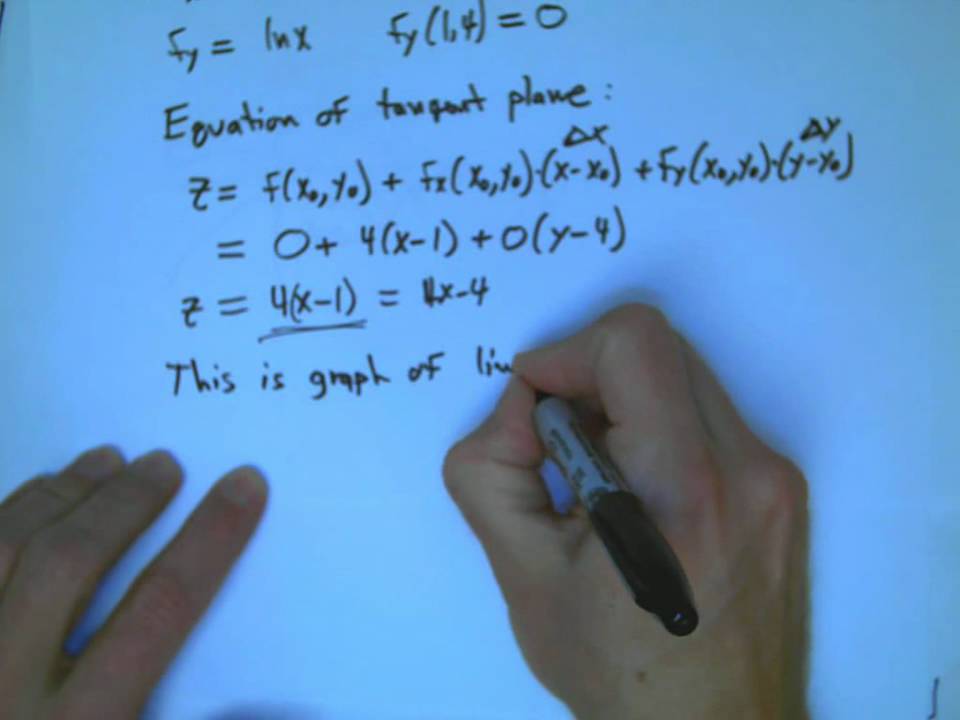 fy = ln x fy(1,4) = 0
Equation of tangent plane:
Δx Δy
z = f(x₀,y₀) + fx(x₀,y₀)·(x-x₀) + fy(x₀,y₀)·(y-y₀)
= 0 + 4(x-1) + 0(y-4)
z = 4(x-1) = 4x-4
This is graph of lin